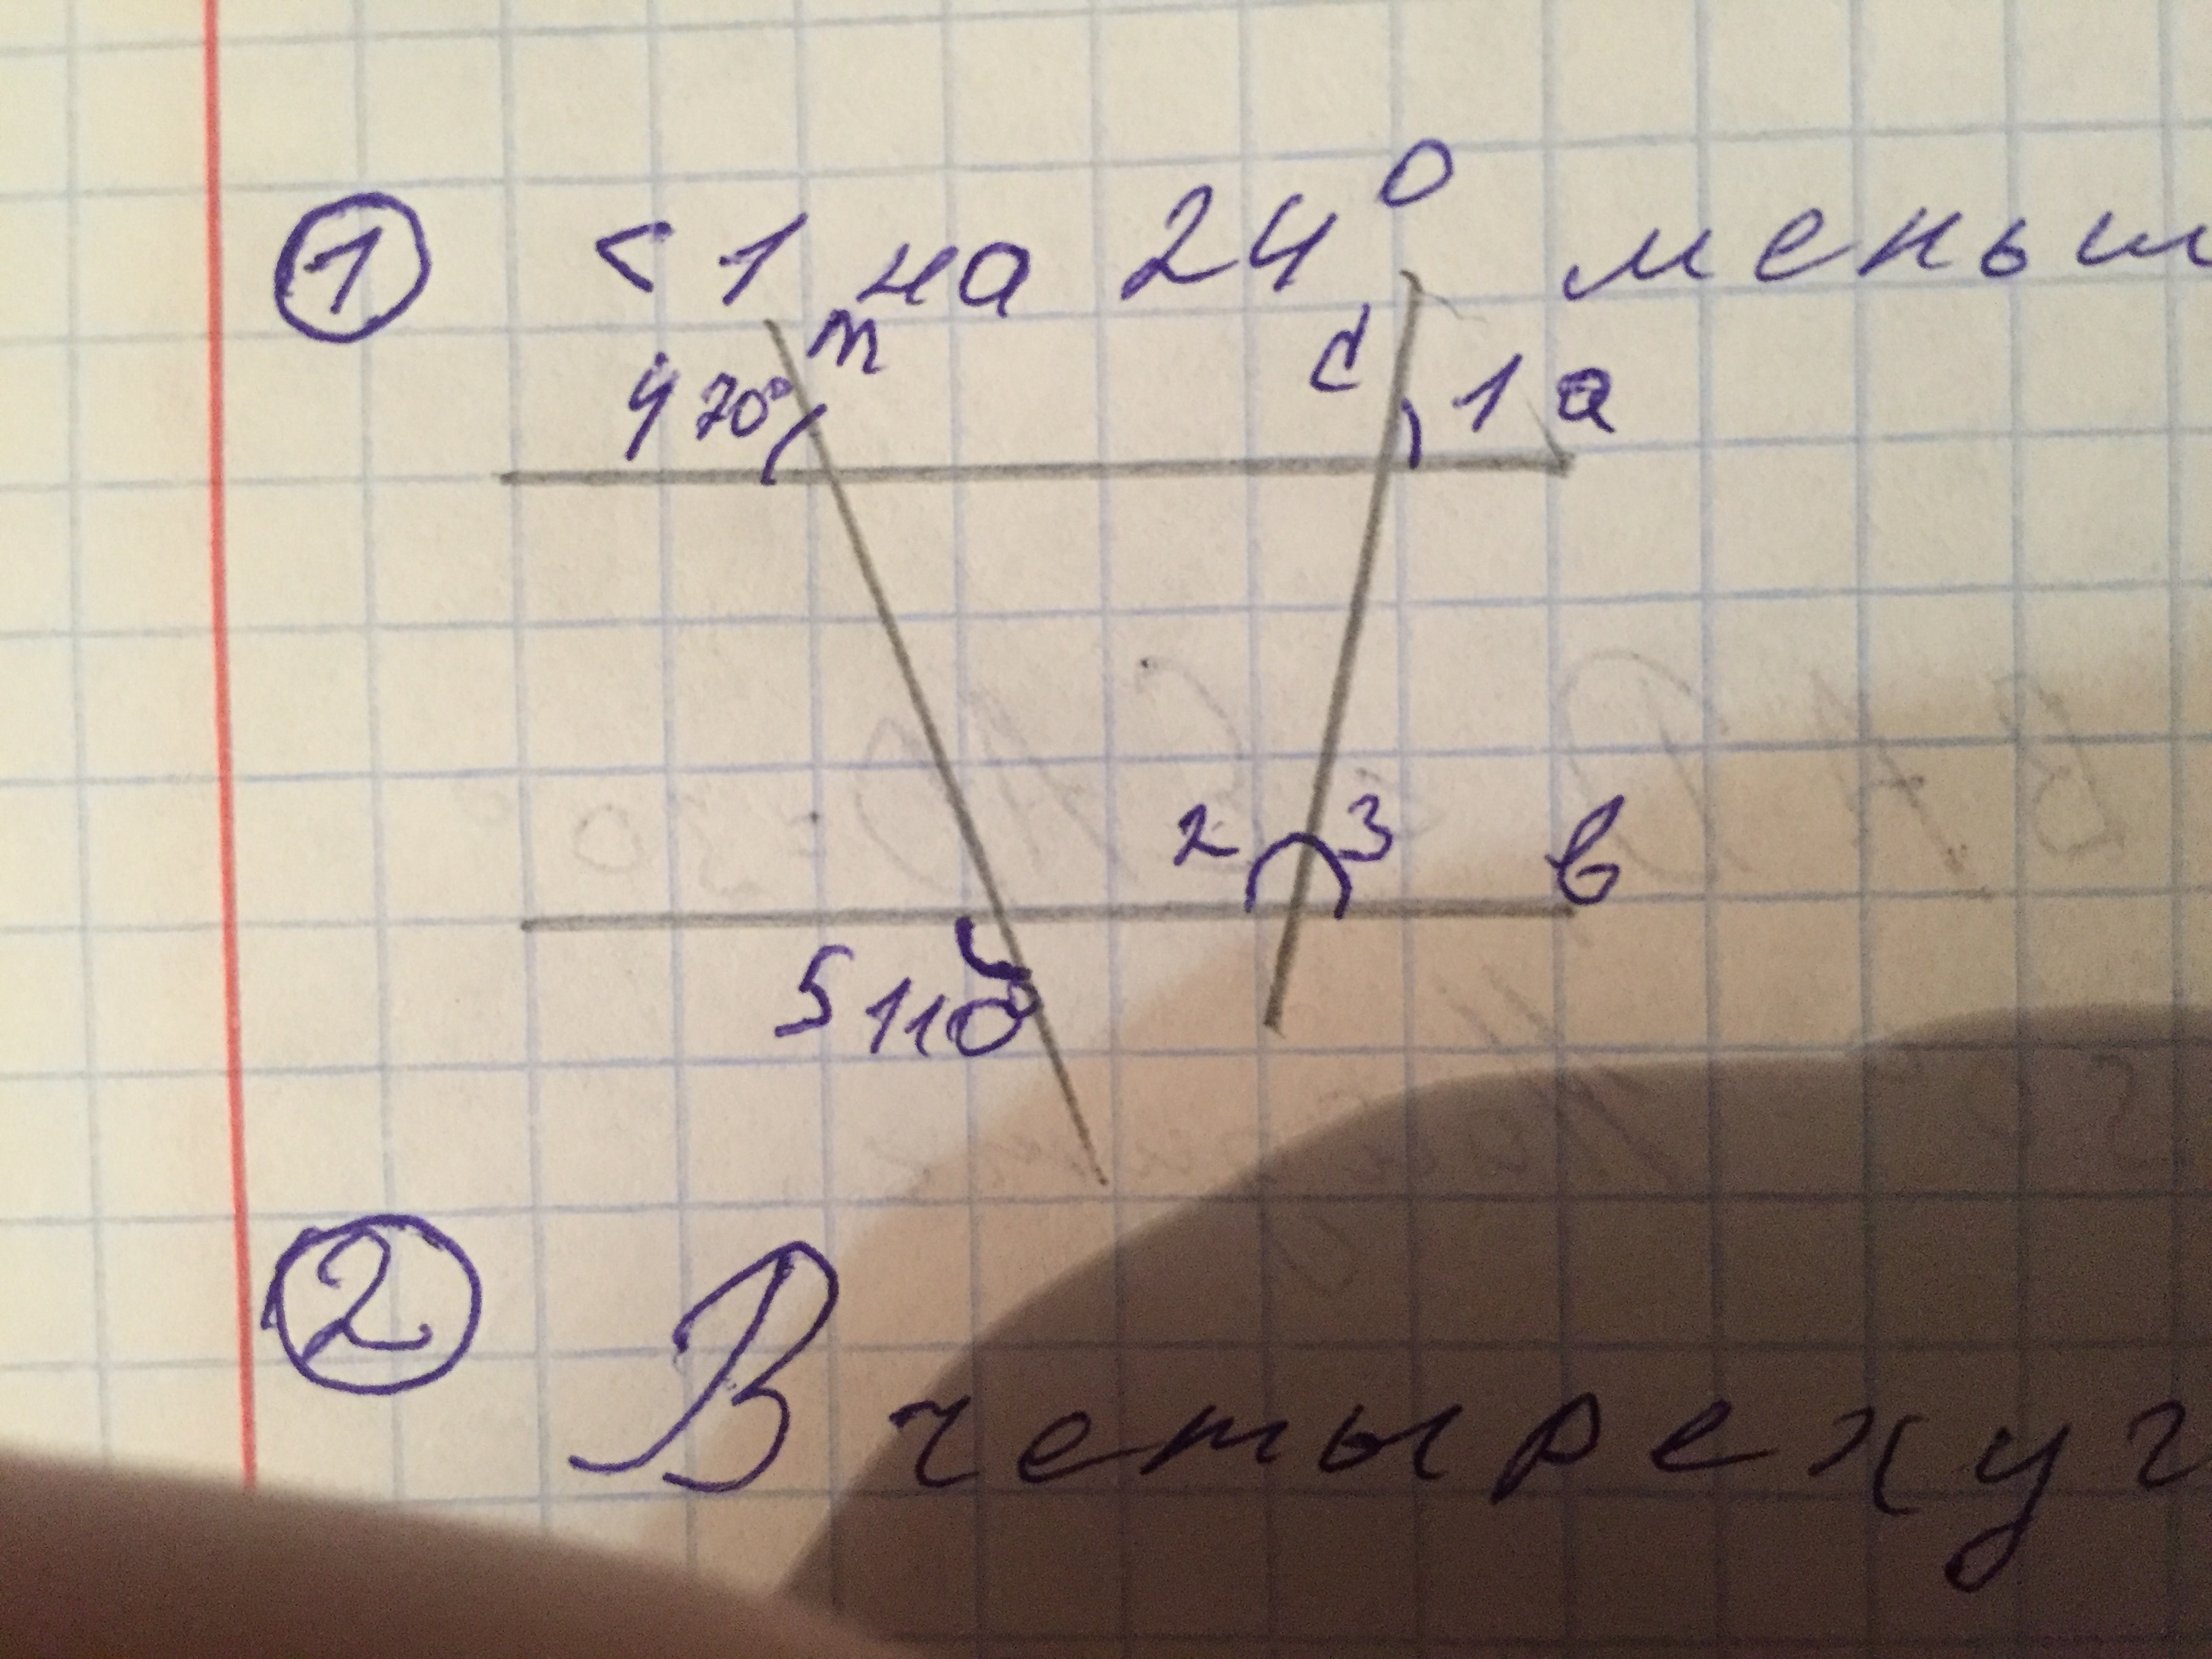 ① <1 на 24° меньш
m d
4 70° 1 a
2 3 b
5 110°
② В четырехуг